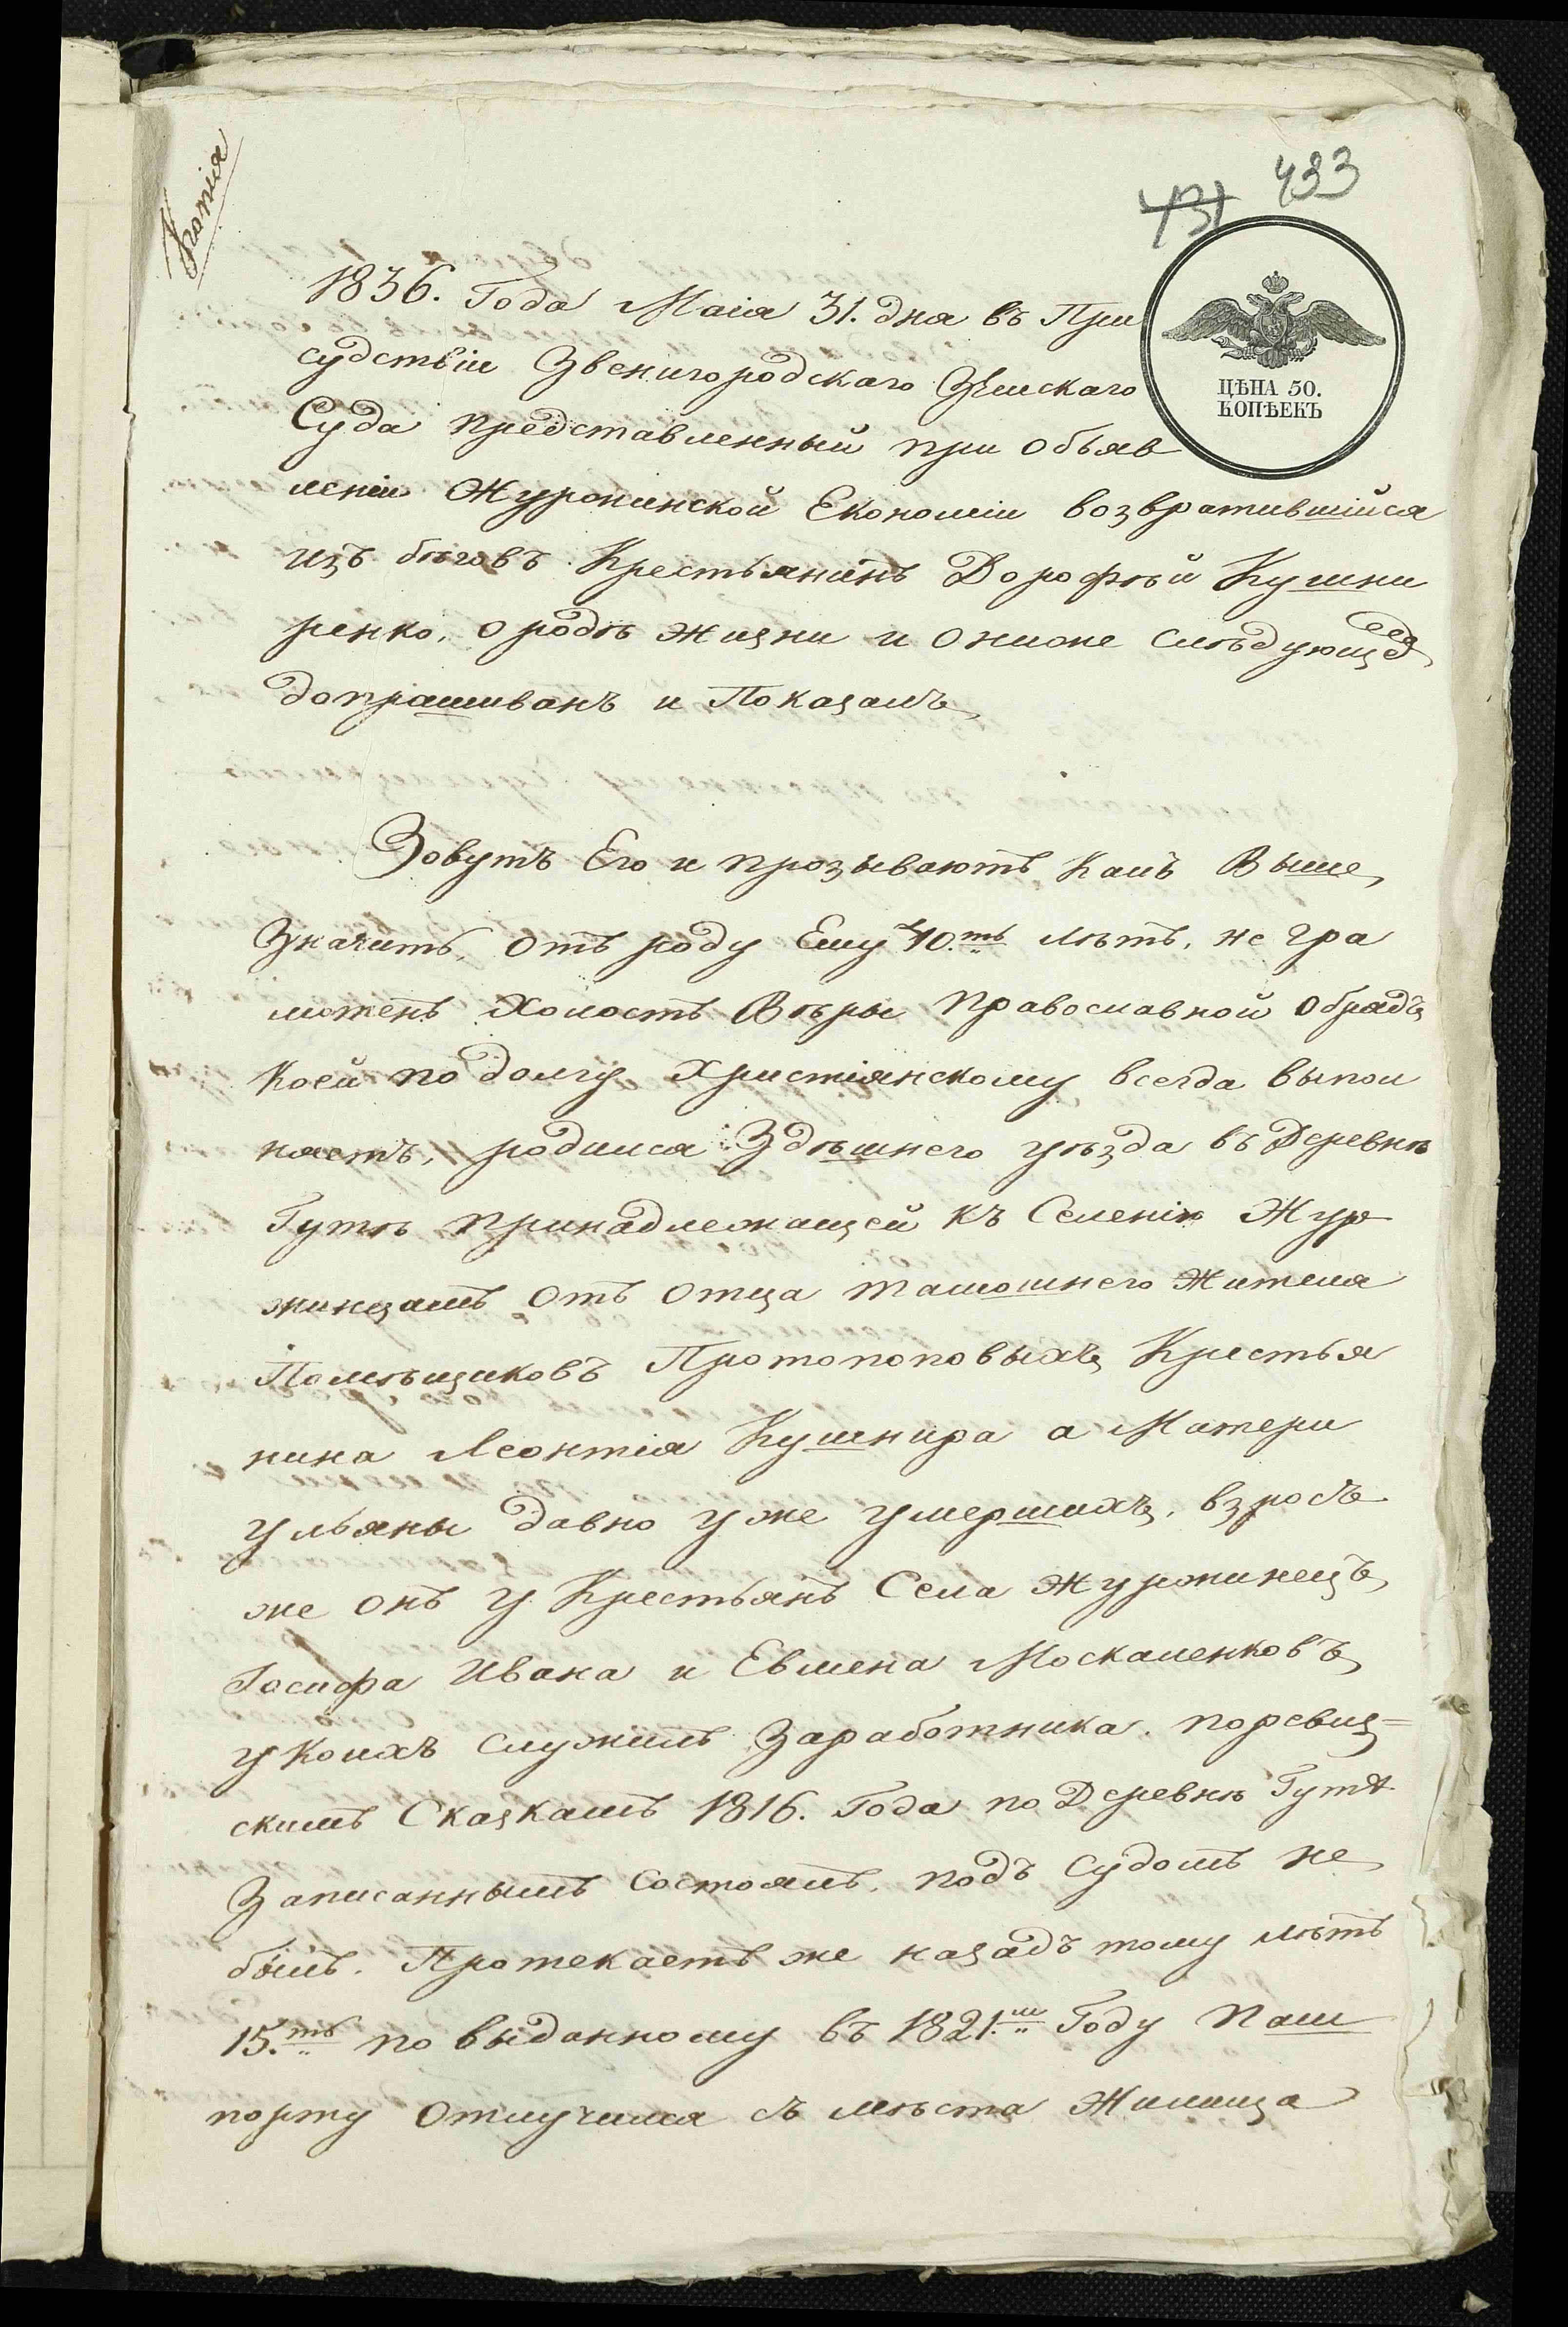 Копія
433
431
ЦѢНА 50.
КОПѢЕКЪ
1836. Года Маія 31. дня въ При
судствіи Звенигородскаго Земскаго
Суда представленный при объяв
леніи Журжинской Економіи возвратившійся
изъ бѣговъ Крестьянинъ Дорофѣй Кушни
ренко, о родѣ жизни и о ниже слѣдующемъ
допрашиванъ и Показалъ
Зовутъ Его и прозываютъ какъ Выше
значитъ, отъ роду Ему 40.тъ лѣтъ, не гра
мотенъ Холостъ Вѣры православной обрядъ
коей по долгу христіянскому всегда выпол
няетъ, родился Здѣшнего уѣзда въ Деревнѣ
Гутѣ принадлежащей къ Селенію Жур
жинцамъ отъ отца тамошнего Жителя
Помѣщиковъ Протопоповыхъ Крестья
нина Леонтія Кушнира а Матери
Ульяны давно уже умершихъ, взросъ
же онъ у Крестьянъ Села Журжинецъ
Іосифа Ивана и Евмена Москаленковъ
у коихъ служилъ Заработника. по ревиз=
скимъ Сказкамъ 1816. Года по Деревнѣ Гутѣ
Записаннымъ состоялъ, подъ судомъ не
былъ. Протекаетъ же назадъ тому лѣтъ
15.тъ по выданному въ 1821.м Году Паш
порту отлучился съ мѣста Жилища